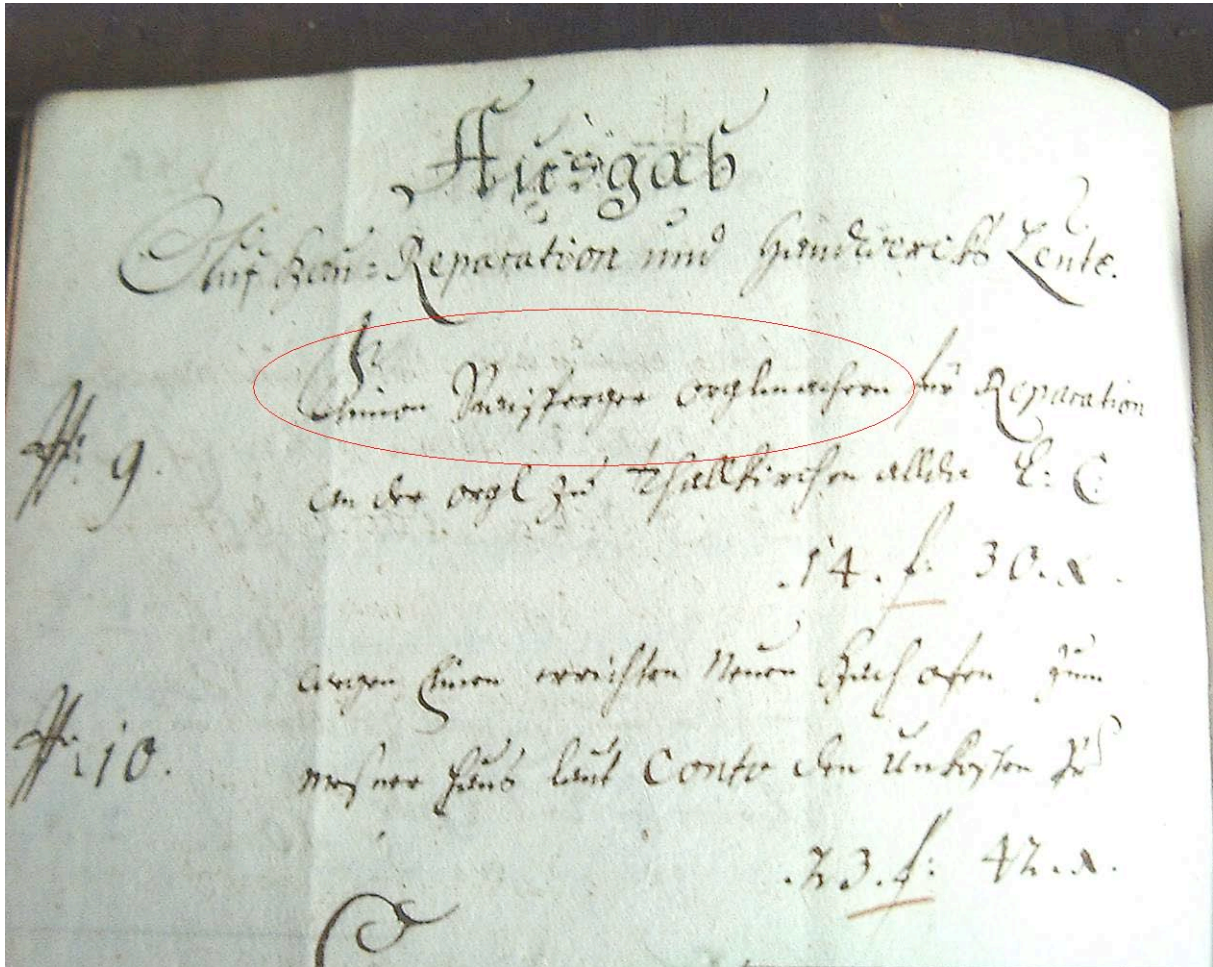 Ausgab
Auf Bau: Reparation und Handwercks Leute.
Einen orglmachern für Reparation
N: 9. an der orgl zu Thallkirchen
.14. f: 30. x.
wegen Einen errichten Neuen Bach ofen zum
N: 10. Mesner Haus laut Conto den Unkosten
.23. f: 42. x.